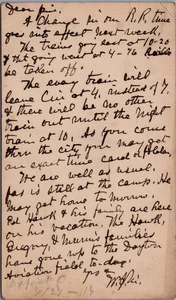 Dear Sis.
A Change in our R.R. time
goes into affect next week.
The trains going east at 10-20
& that going west at 4-76 will
be taken off.
The east train will
leave Cin at 4, instead of 7
& there will be no other
train out until the night
train at 10. As you come
thru the city you may get
an exact time card
We are well as usual.
Pa is still at the camp. He
may get home to morrow.
& his family are here
on his vacation. The
& families
have gone up to the Dayton
Aviation field to-day.